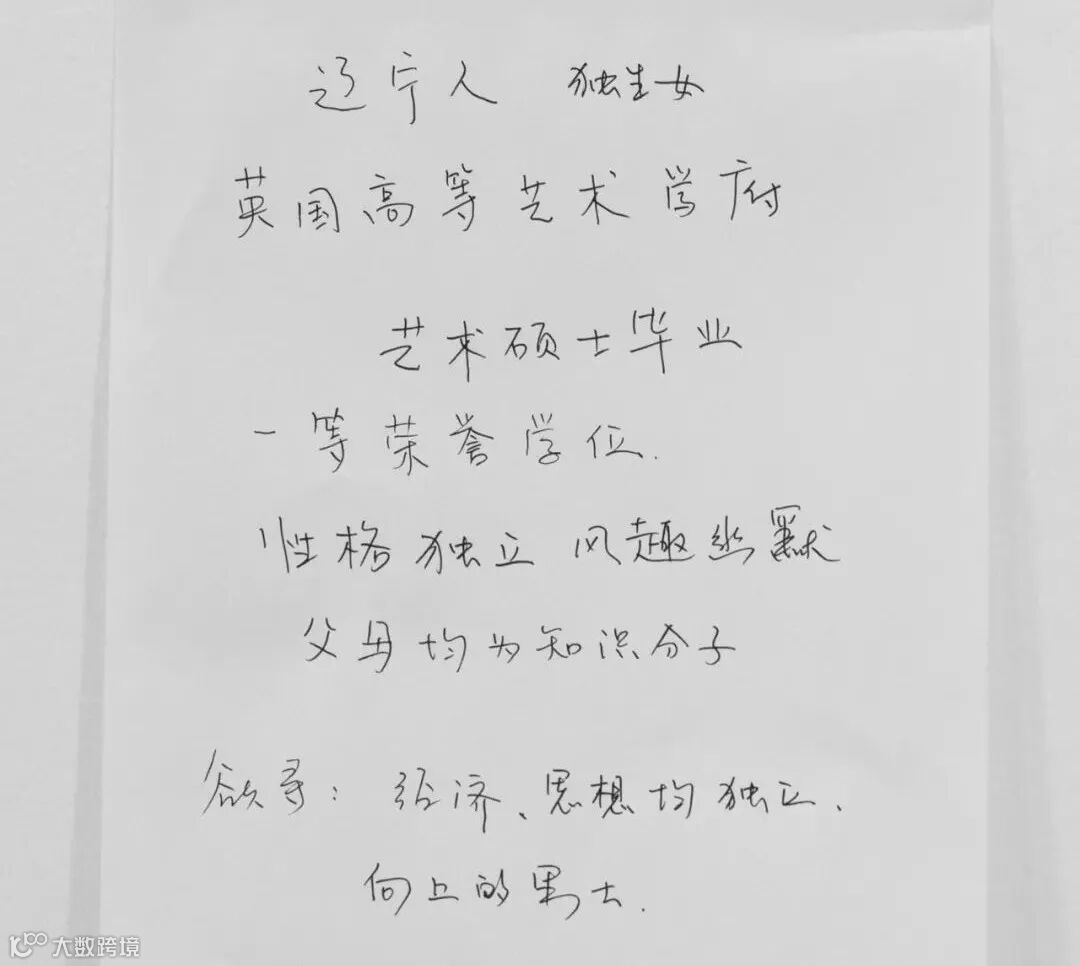 辽宁人 独生女
英国高等艺术学府
艺术硕士毕业
一等荣誉学位.
性格独立 风趣幽默
父母均为知识分子
欲寻: 经济、思想均独立、
向上的男士.
大数跨境